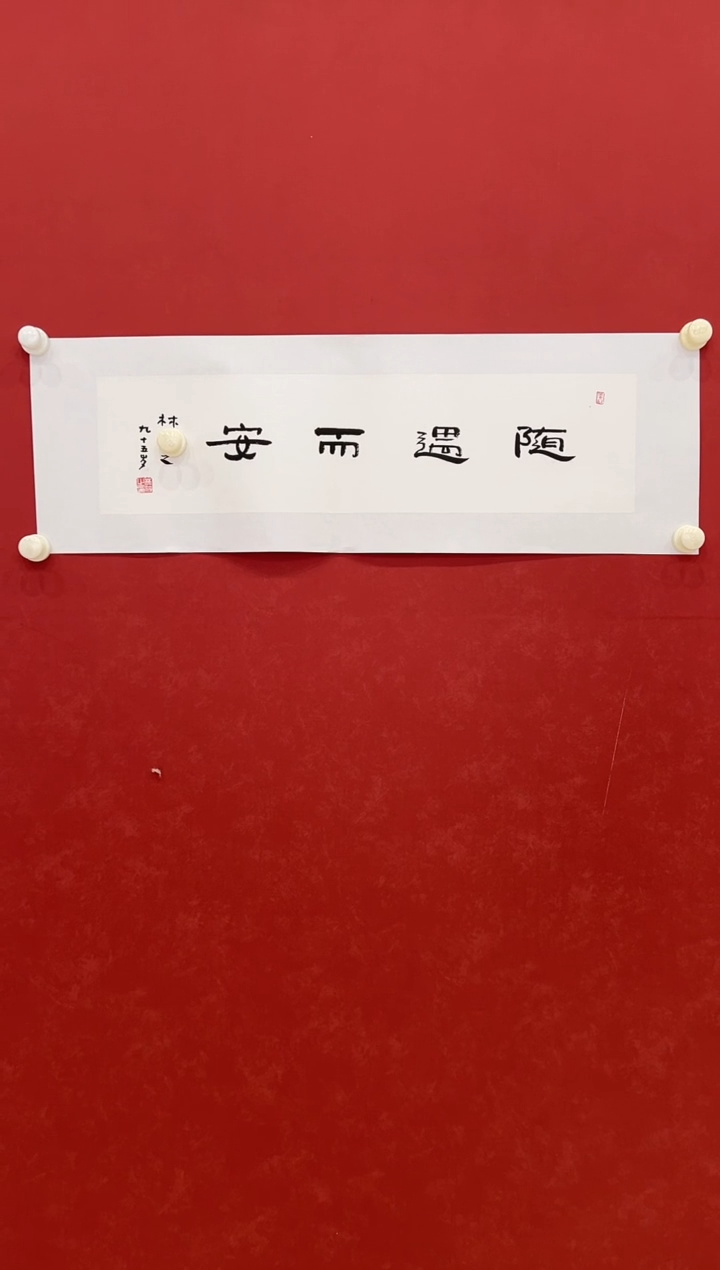 随遇而安
林
九十五岁